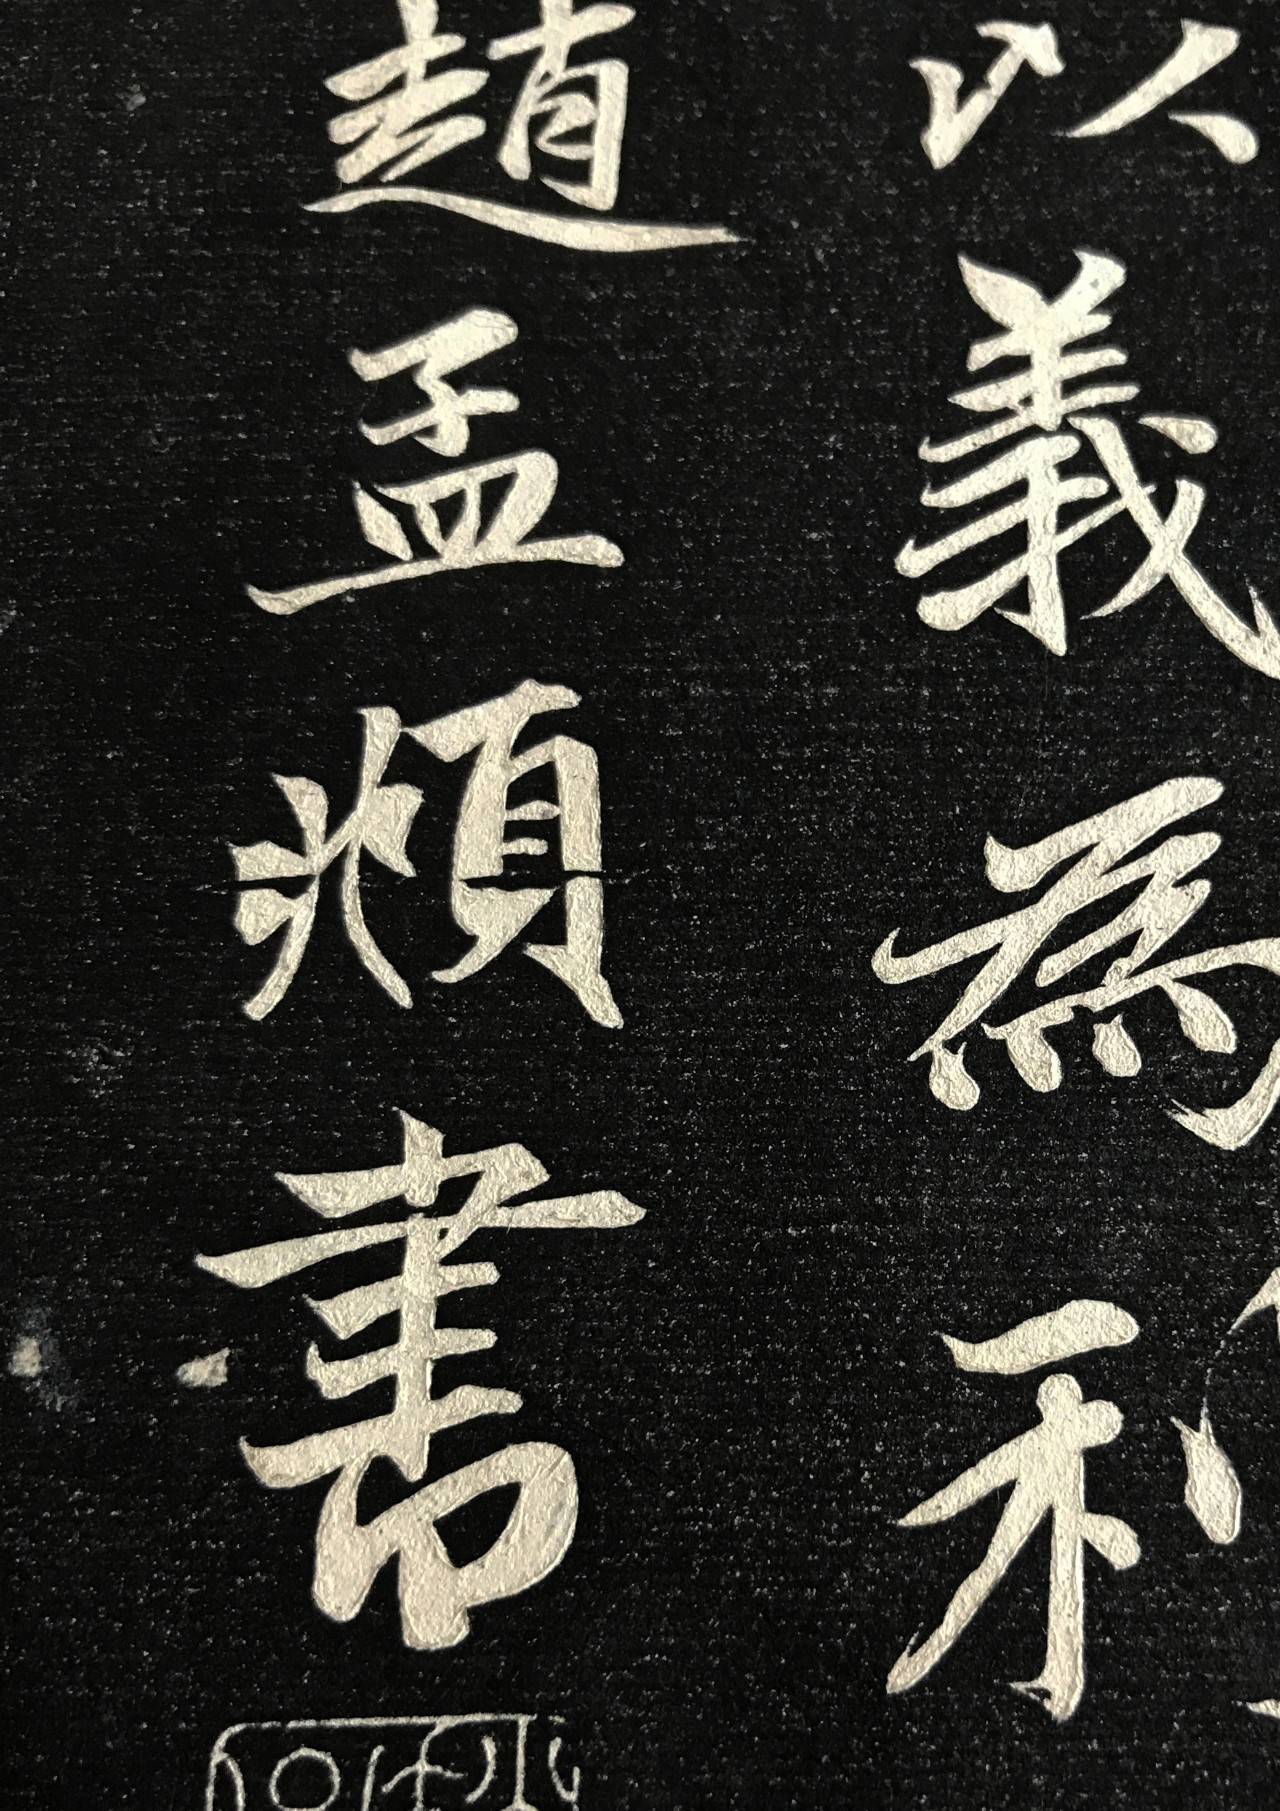 以義為利
趙孟頫書